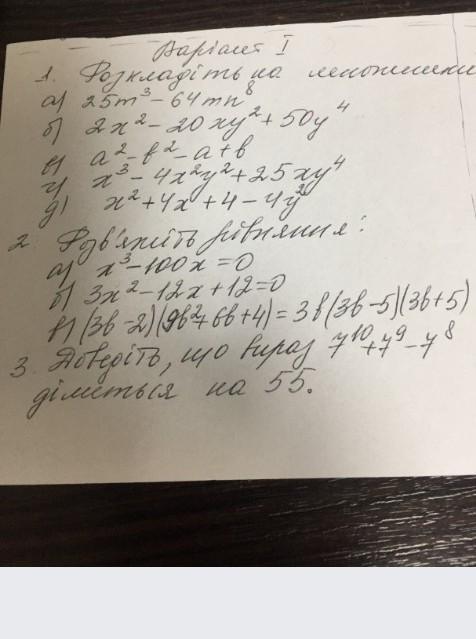 Варіант I
1. Розкладіть на множники
а) 25m³ - 64mn⁸
б) 2x² - 20xy² + 50y⁴
в) a² - b² - a + b
г) x³ - 4x²y² + 25xy⁴
д) x² + 4x + 4 - 4y²
2. Розв'яжіть рівняння:
а) x³ - 100x = 0
б) 3x² - 12x + 12 = 0
в) (3b - 2)(9b² + 6b + 4) = 3b(3b - 5)(3b + 5)
3. Доведіть, що вираз 7¹⁰ + 7⁹ - 7⁸
ділиться на 55.